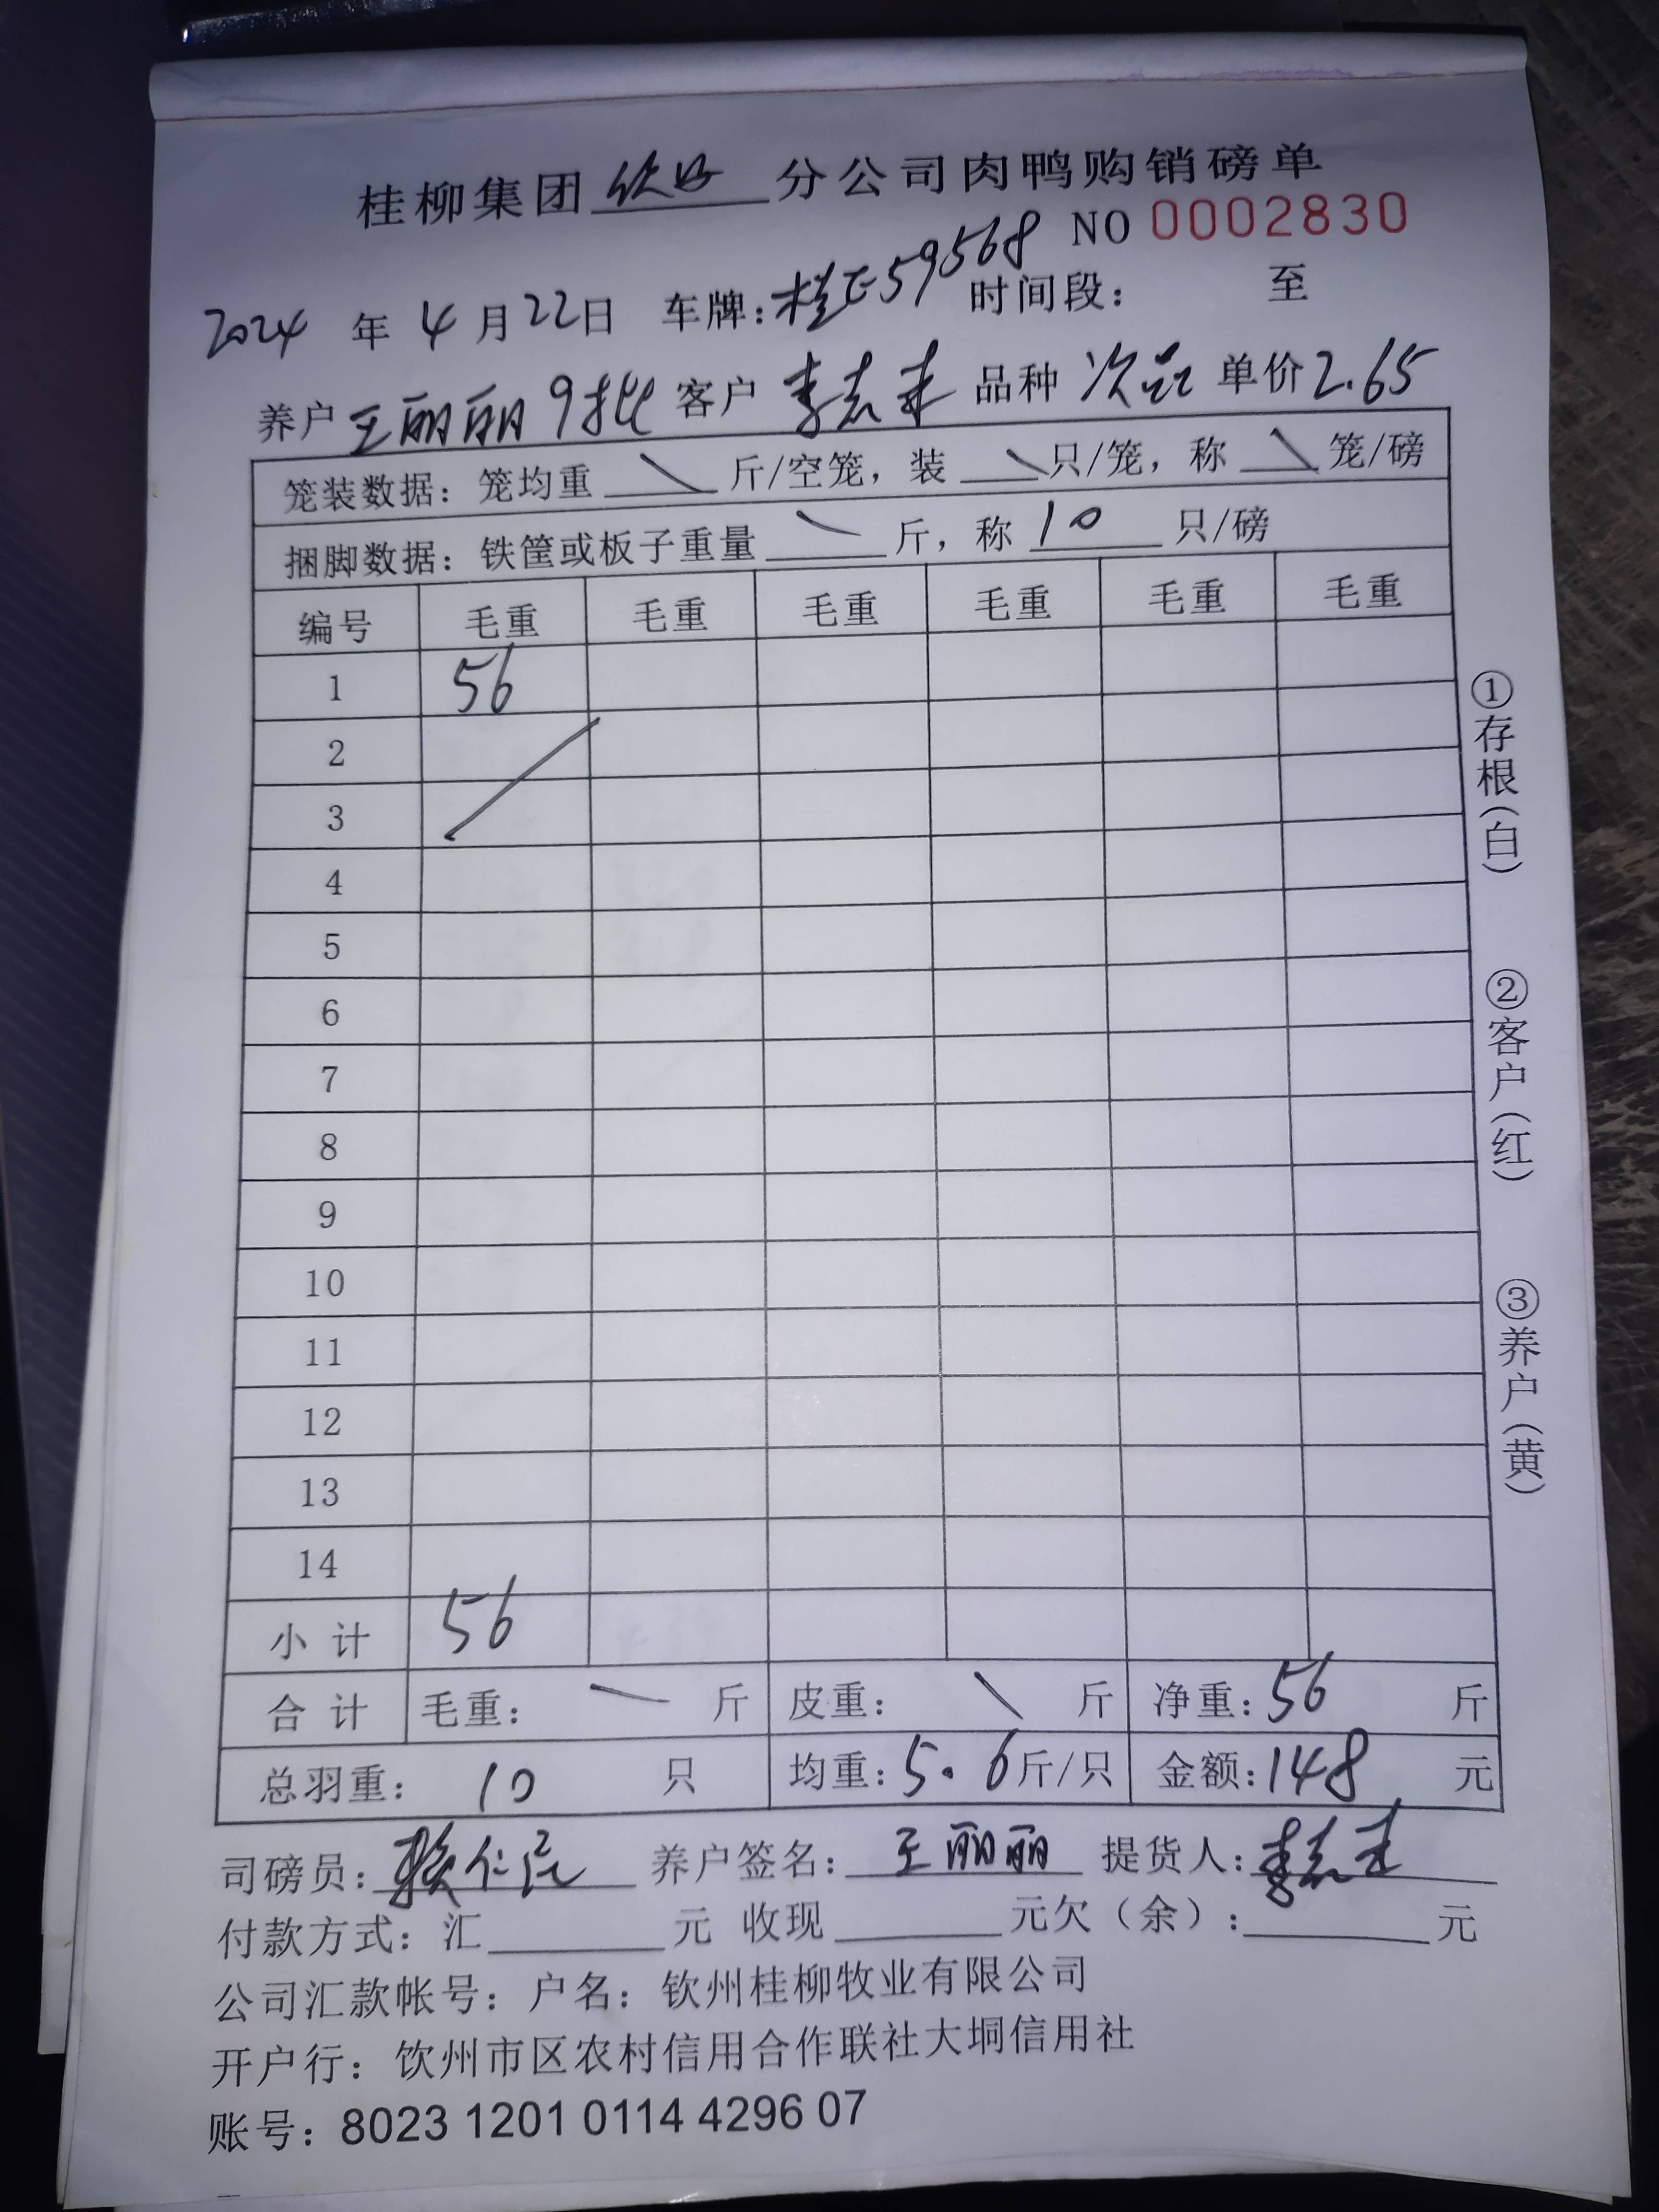 桂柳集团钦州分公司肉鸭购销磅单
NO 0002830
2024年4月22日 车牌:桂E59568 时间段: 至
养户 王丽丽9批 客户 李志来 品种 次品 单价2.65
笼装数据:笼均重 \ 斤/空笼,装 \ 只/笼,称 \ 笼/磅
捆脚数据:铁筐或板子重量 \ 斤,称 10 只/磅
编号 毛重 毛重 毛重 毛重 毛重 毛重
1 56
2
3
4
5
6
7
8
9
10
11
12
13
14
小计 56
合计 毛重: 斤 皮重: \ 斤 净重:56 斤
总羽重: 10 只 均重:5.6斤/只 金额:148 元
司磅员:赖仁 养户签名:王丽丽 提货人:李志来
付款方式:汇 元 收现 元欠(余): 元
公司汇款帐号:户名:钦州桂柳牧业有限公司
开户行:钦州市区农村信用合作联社大垌信用社
账号:8023 1201 0114 4296 07
①存根(白)
②客户(红)
③养户(黄)